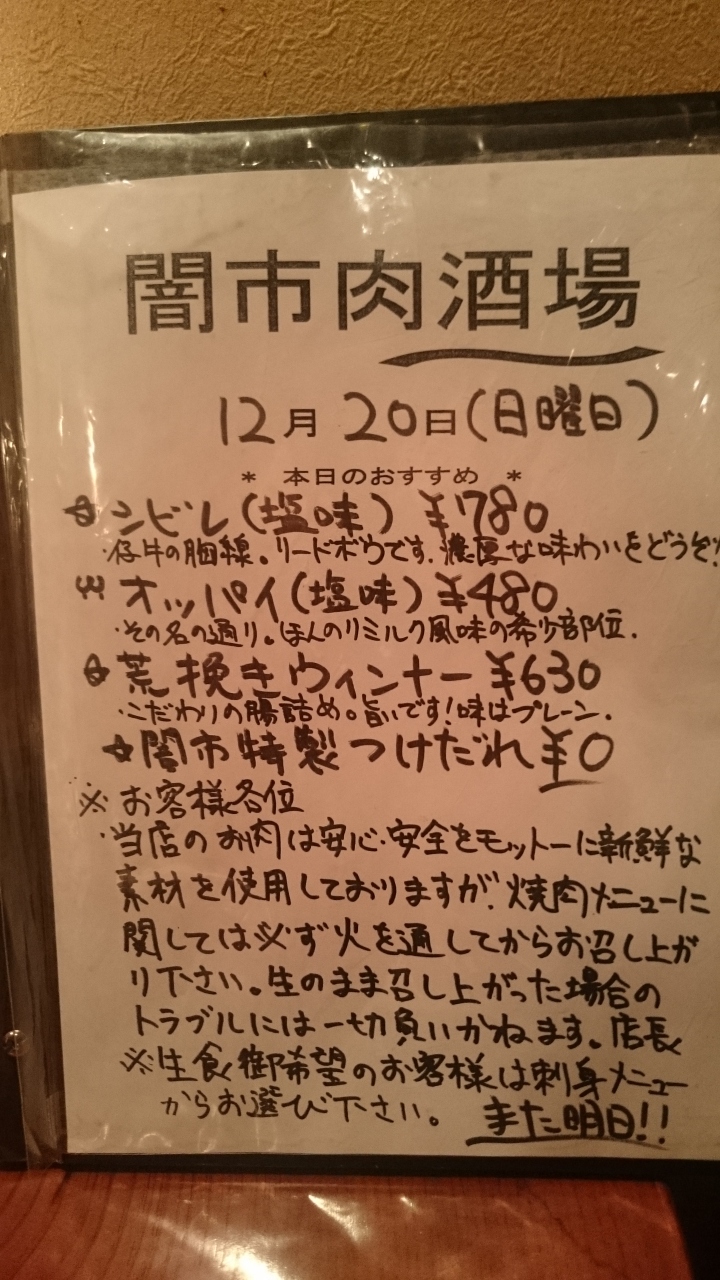 闇市肉酒場
12月20日(日曜日)
* 本日のおすすめ *
☆シビレ(塩味) ¥780
・仔牛の胸線。リードボウです。濃厚な味わいをどうぞ!
☆オッパイ(塩味) ¥480
・その名の通り。ほんのりミルク風味の希少部位.
☆荒挽きウィンナー ¥630
・こだわりの腸詰め。旨いです!味はプレーン.
☆闇市特製つけだれ¥0
※お客様各位
・当店のお肉は安心・安全をモットーに新鮮な
素材を使用しておりますが、焼肉メニューに
関しては必ず火を通してからお召し上が
り下さい。生のまま召し上がった場合の
トラブルには一切負いかねます。店長
※生食御希望のお客様は刺身メニュー
からお選び下さい。 また明日!!